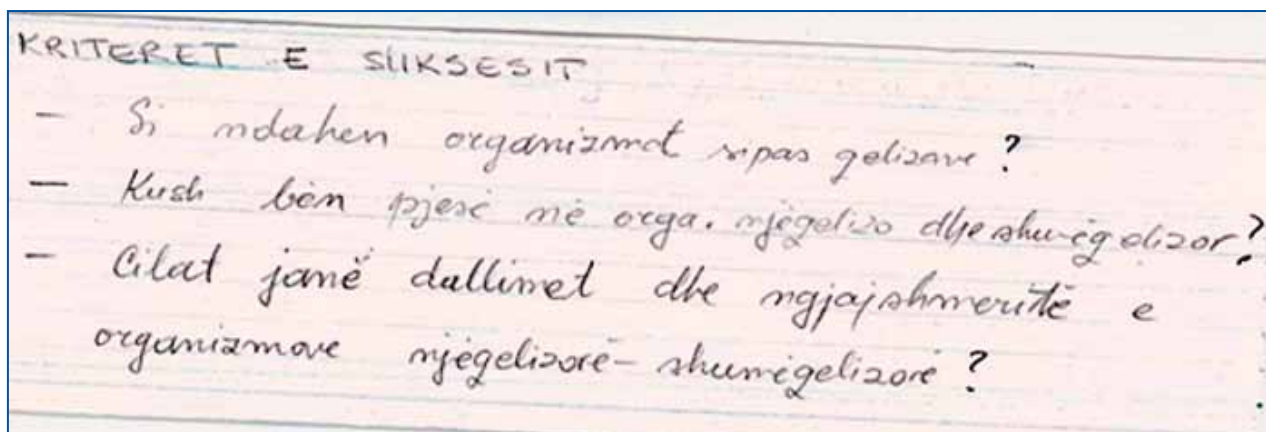 KRITERET E SUKSESIT
- Si ndahen organizmat sipas qelizave?
- Kush bën pjesë në orga. njëqelizo dhe shumëqelizor?
- Cilat janë dallimet dhe ngjajshmeritë e
organizmave njëqelizorë - shumëqelizorë?